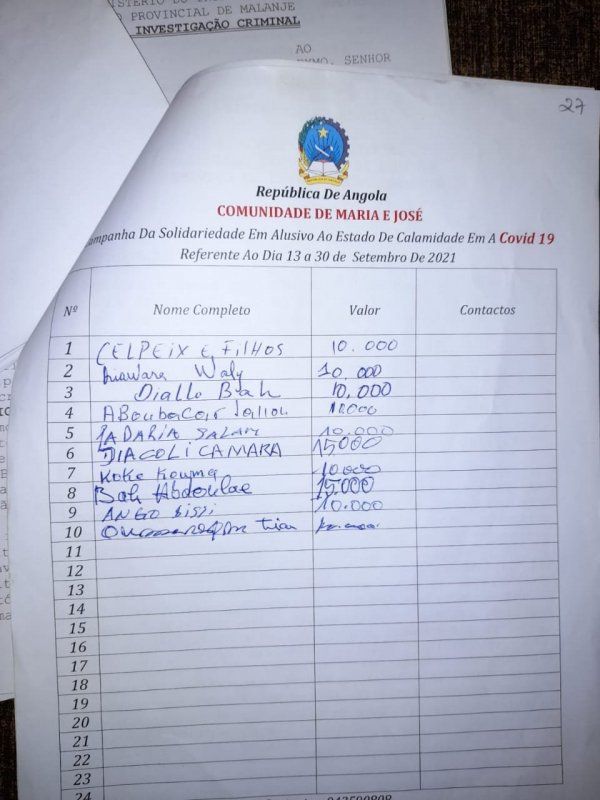 PROVINCIAL DE MALANJE
INVESTIGAÇÃO CRIMINAL
AO
SENHOR
27
República De Angola
COMUNIDADE DE MARIA E JOSÉ
Campanha Da Solidariedade Em Alusivo Ao Estado De Calamidade Em A Covid 19
Referente Ao Dia 13 a 30 de Setembro De 2021
Nº Nome Completo Valor Contactos
1 CELPEIX E FILHOS 10.000
2 Waly 10.000
3 Diallo Bah 10.000
4 Aboubacar 11000
5 SALAM 10.000
6 DIACOLI CAMARA 15000
7 Koke Kouma 10.000
8 Bah Abdoulae 15.000
9 ANGO BISSI 10.000
10
11
12
13
14
15
16
17
18
19
20
21
22
23
24